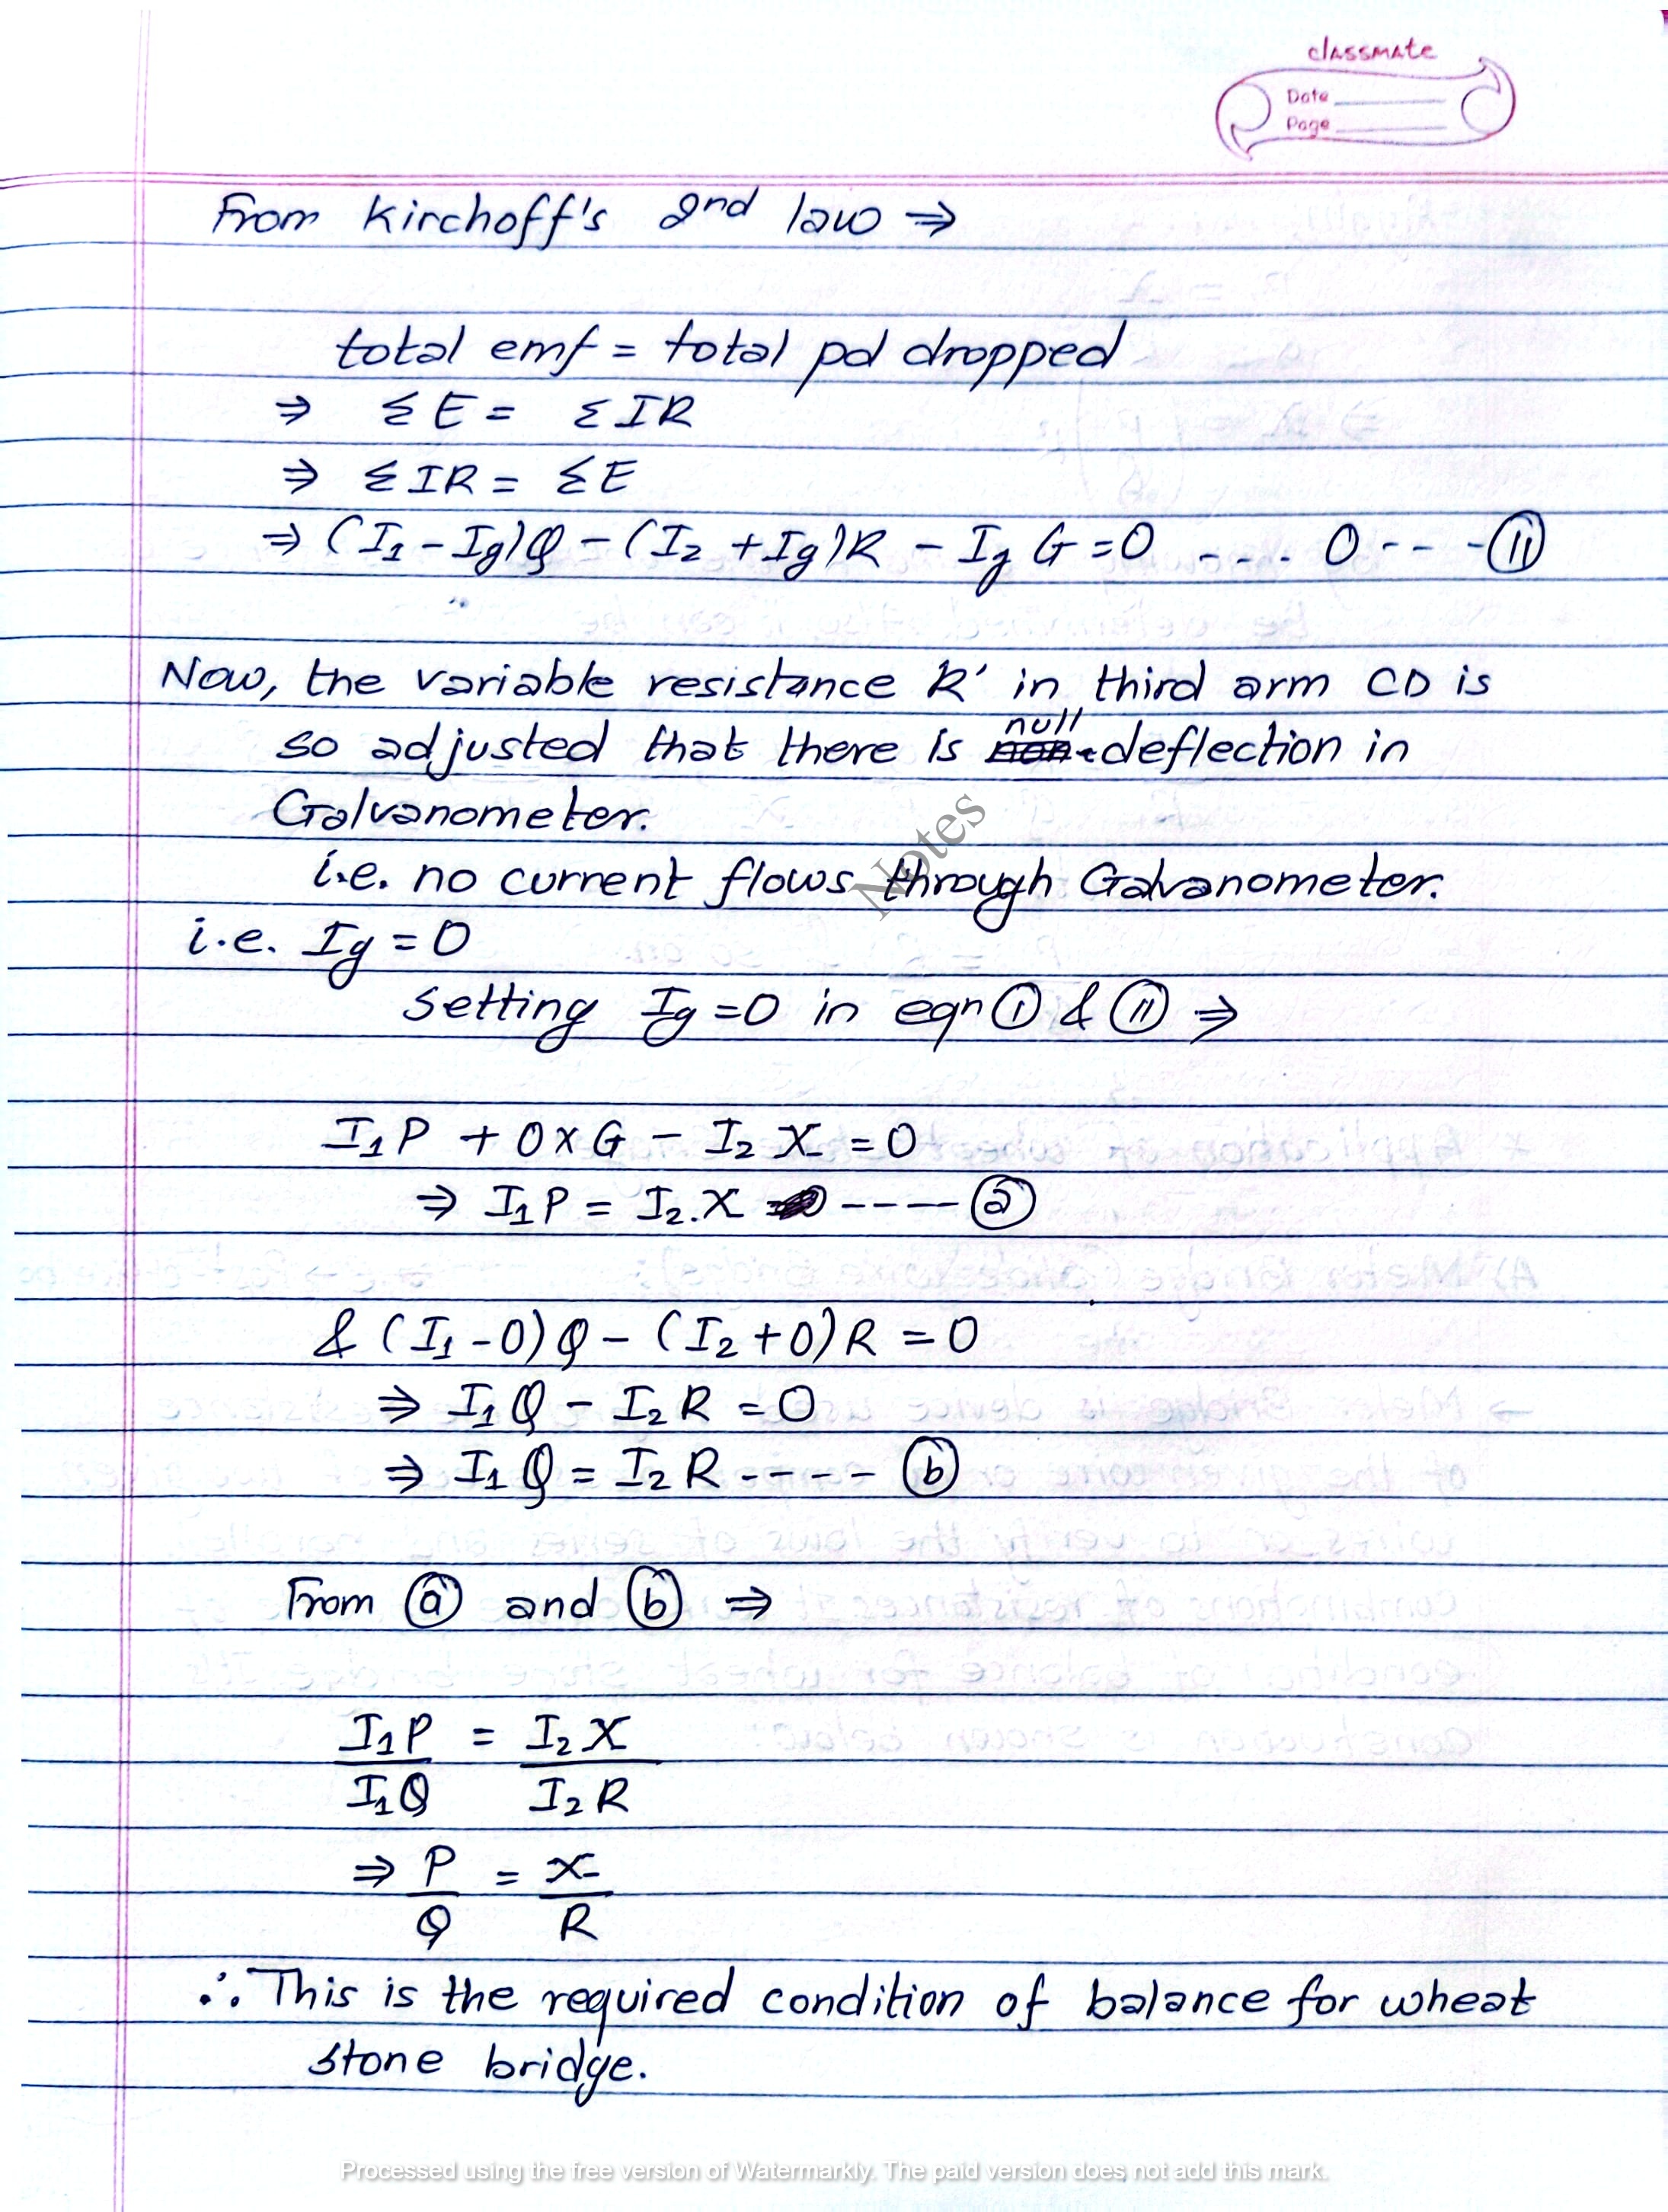 classmate
Date
Page
From Kirchoff's 2nd law ⇒
total emf = total pd dropped
⇒ ΣE = ΣIR
⇒ ΣIR = ΣE
⇒ (I₁ - Ig)Q - (I₂ + Ig)R - Ig G = 0 ---- 0 --- (II)
Now, the variable resistance R' in third arm CD is
so adjusted that there is null deflection in
Galvanometer.
i.e. no current flows through Galvanometer.
Notes
i.e. Ig = 0
setting Ig = 0 in eqn (I) & (II) ⇒
I₁P + 0×G - I₂X = 0
⇒ I₁P = I₂.X ---- (a)
& (I₁ - 0)Q - (I₂ + 0)R = 0
⇒ I₁Q - I₂R = 0
⇒ I₁Q = I₂R ---- (b)
From (a) and (b) ⇒
I₁P = I₂X
I₁Q I₂R
⇒ P = X
Q R
∴ This is the required condition of balance for wheat
stone bridge.
Processed using the free version of Watermarkly. The paid version does not add this mark.